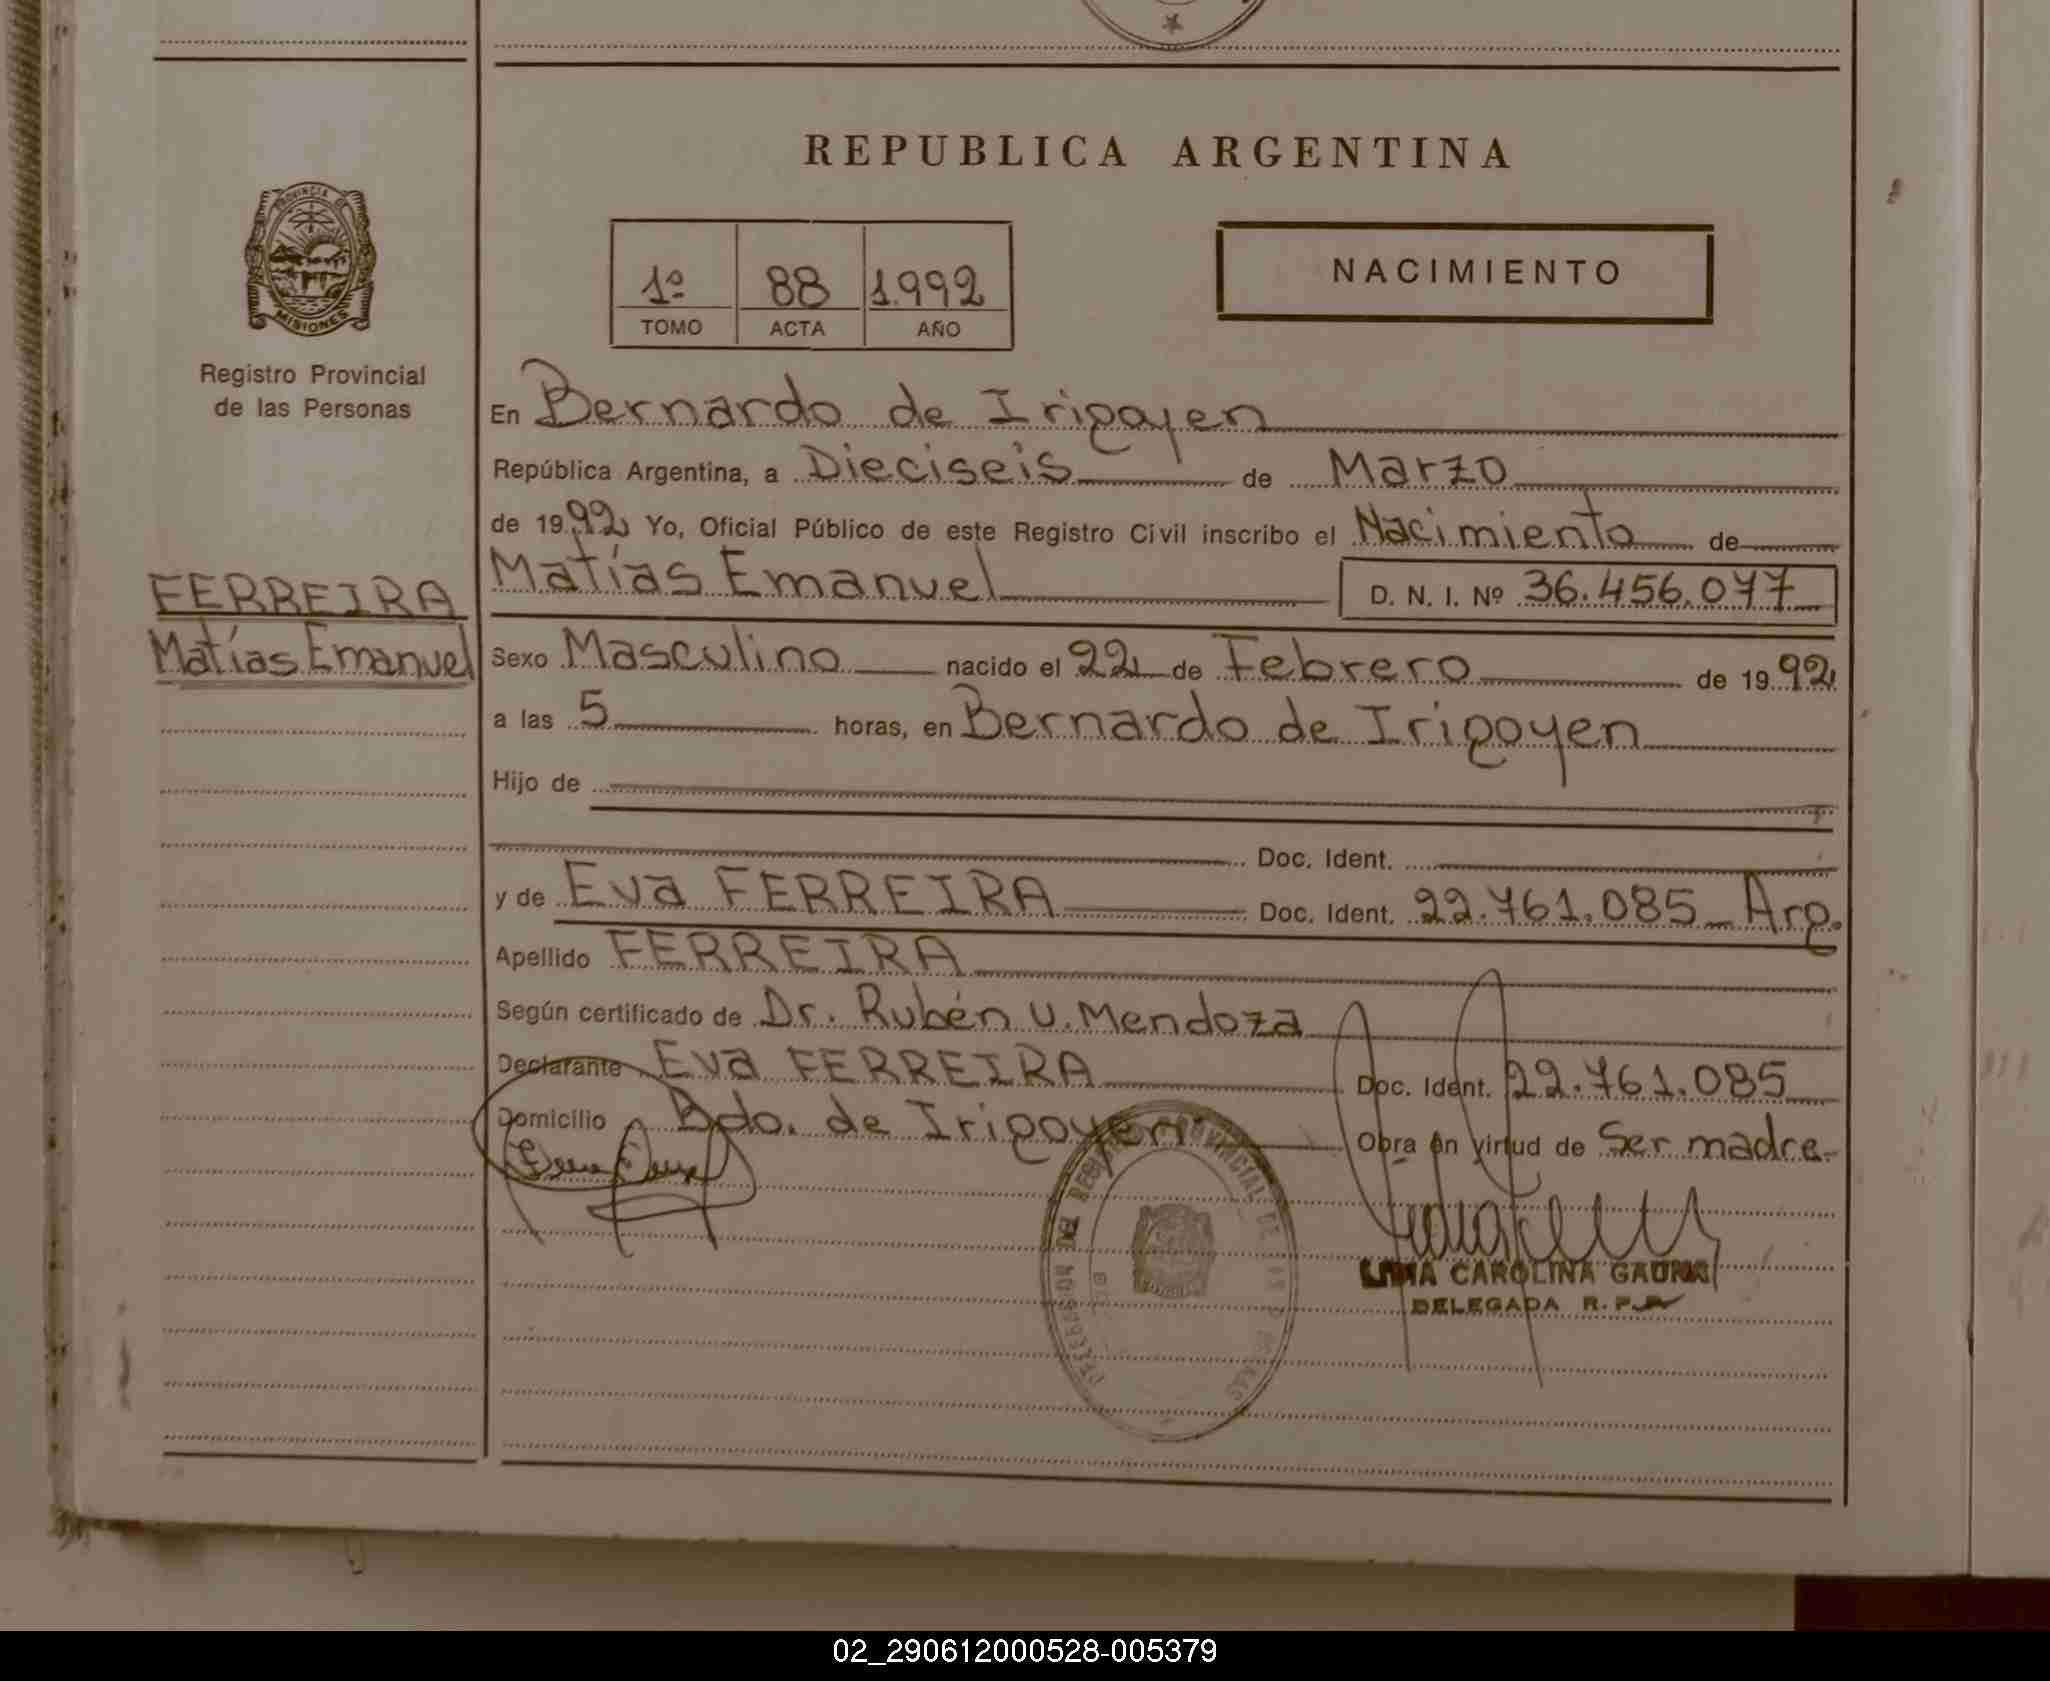 REPUBLICA ARGENTINA
PROVINCIA DE
MISIONES
Registro Provincial
de las Personas
1º 88 1.992
TOMO ACTA AÑO
NACIMIENTO
En Bernardo de Irigoyen
República Argentina, a Dieciseis de Marzo
de 1992 Yo, Oficial Público de este Registro Civil inscribo el Nacimiento de
Matías Emanuel D. N. I. Nº 36.456.077
FERREIRA
Matías Emanuel
Sexo Masculino nacido el 22 de Febrero de 1992
a las 5 horas, en Bernardo de Irigoyen
Hijo de
Doc. Ident.
y de Eva FERREIRA Doc. Ident. 22.761.085 Arg.
Apellido FERREIRA
Según certificado de Dr. Rubén U. Mendoza
Declarante Eva FERREIRA Doc. Ident. 22.761.085
Domicilio Bdo. de Irigoyen Obra en virtud de Ser madre
REGISTRO PROVINCIAL DE LAS
CAROLINA GAUNA
DELEGADA R.P.P.
02_290612000528-005379